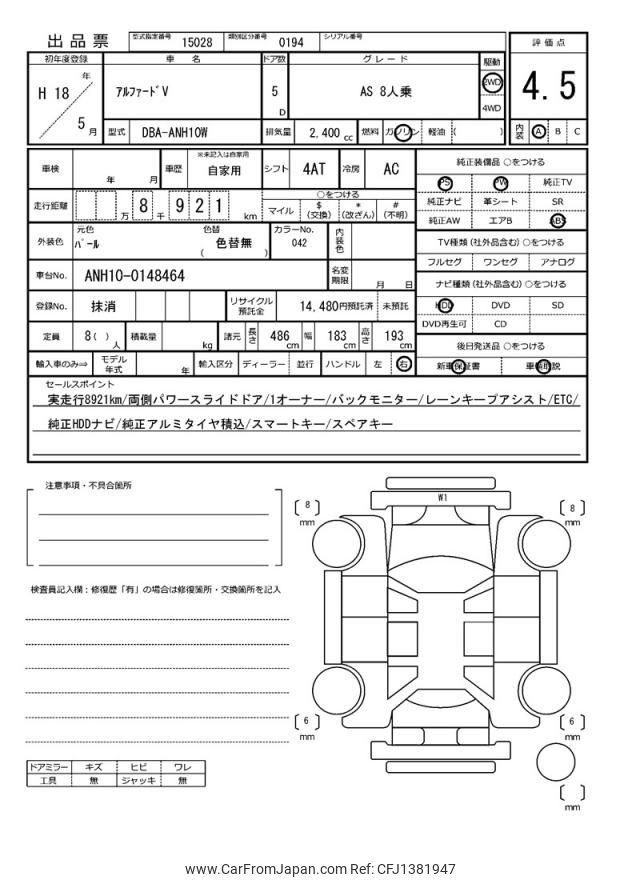 出品票 型式指定番号 15028 類別区分番号 0194 シリアル番号
初年度登録 車 名 ドア数 グレード 駆動 評価点
H 18 年 5 月 アルファードV 5 D AS 8人乗 2WD 4WD 4.5
型式 DBA-ANH10W 排気量 2,400 cc 燃料 ガソリン 軽油 ( ) 内装 A B C
車検 年 月 車歴 ※未記入は自家用 自家用 シフト 4AT 冷房 AC
純正装備品 ○をつける
PS PW 純正TV
走行距離 万 8 千 9 2 1 km ○をつける
マイル $(交換) *(改ざん) #(不明)
純正ナビ 革シート SR
純正AW エアB ABS
外装色 元色 パール 色替 ( 色替無 ) カラーNo. 042 内装色
TV種類(社外品含む)○をつける
フルセグ ワンセグ アナログ
車台No. ANH10-0148464 名変期限 月 日
ナビ種類(社外品含む)○をつける
登録No. 抹消 リサイクル預託金 14,480円預託済 未預託
HDD DVD SD
DVD再生可 CD
定員 8( ) 人 積載量 kg 諸元 長さ 486 cm 幅 183 cm 高さ 193 cm
後日発送品 ○をつける
輸入車のみ⇨ モデル年式 年 輸入区分 ディーラー 並行 ハンドル 左 右
新車保証書 車輌取説
セールスポイント
実走行8921km/両側パワースライドドア/1オーナー/バックモニター/レーンキープアシスト/ETC/
純正HDDナビ/純正アルミタイヤ積込/スマートキー/スペアキー
注意事項・不具合箇所
W1
8 mm
8 mm
検査員記入欄:修復歴「有」の場合は修復箇所・交換箇所を記入
6 mm
6 mm
mm
ドアミラー キズ ヒビ ワレ
工具 無 ジャッキ 無
www.CarFromJapan.com Ref: CFJ1381947